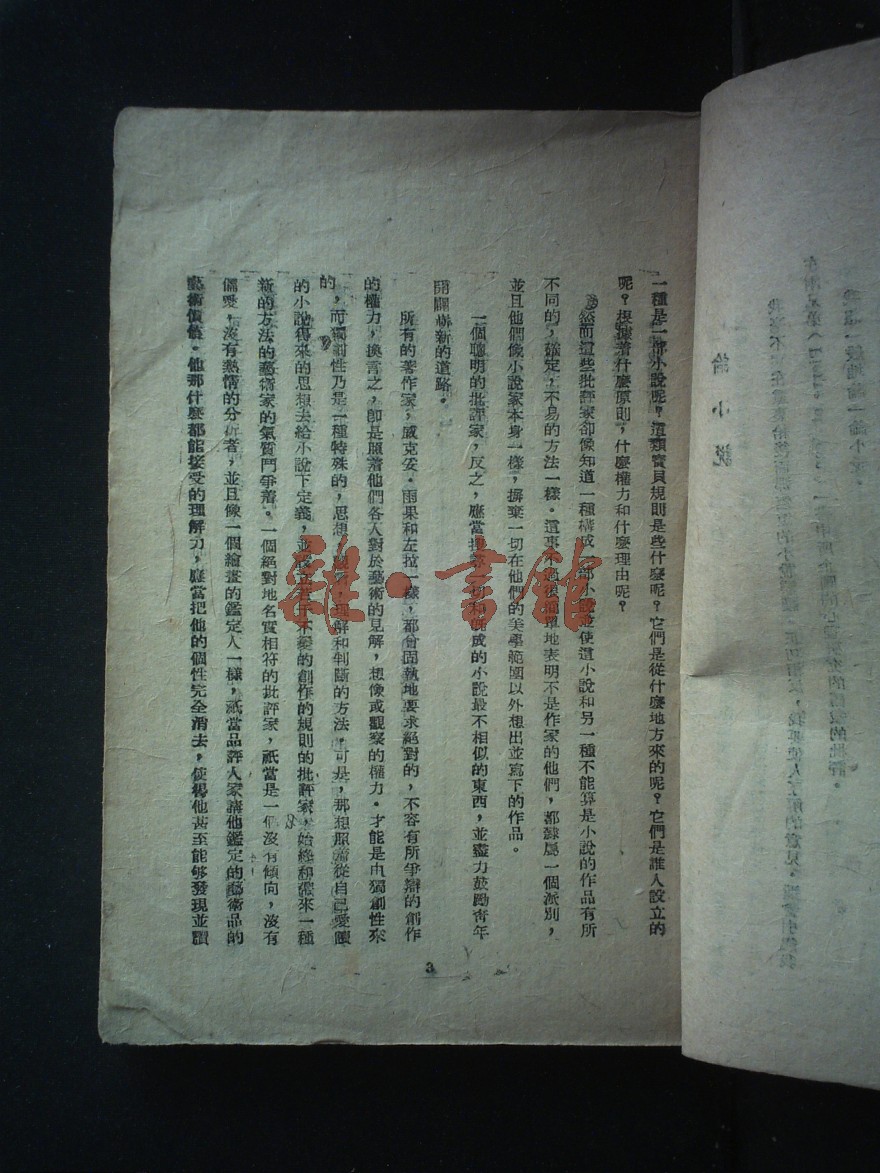 一種是一部小說呢？這類寶貝規則是些什麼呢？它們是從什麼地方來的呢？它們是誰人設立的
呢？根據着什麼原則，什麼權力和什麼理由呢？
然而這些批評家卻像知道一種構成一部小說並使這小說和另一種不能算是小說的作品有所
不同的，確定，不易的方法一樣。這事不過很簡單地表明不是作家的他們，都隸屬一個派別，
並且他們像小說家本身一樣，摒棄一切在他們的美學範圍以外想出並寫下的作品。
一個聰明的批評家，反之，應當搜尋一切和既成的小說最不相似的東西，並盡力鼓勵青年
開闢嶄新的道路。
所有的著作家，威克妥·雨果和左拉一樣，都曾固執地要求絕對的，不容有所爭辯的創作
的權力，換言之，卽是照着他們各人對於藝術的見解，想像或觀察的權力。才能是由獨創性來
的，而獨創性乃是一種特殊的，思想，觀察，理解和判斷的方法。可是，那想照着從自己愛讀
的小說得來的思想去給小說下定義，並設立若干不變的創作的規則的批評家，始終和帶來一種
新的方法的藝術家的氣質鬥爭着。一個絕對地名實相符的批評家，祇當是一個沒有傾向，沒有
偏愛，沒有熱情的分析者，並且像一個繪畫的鑑定人一樣，祇當品評人家請他鑑定的藝術品的
藝術價值。他那什麼都能接受的理解力，應當把他的個性完全消去，使得他甚至能够發現並讚
3
論小說
雜·書館